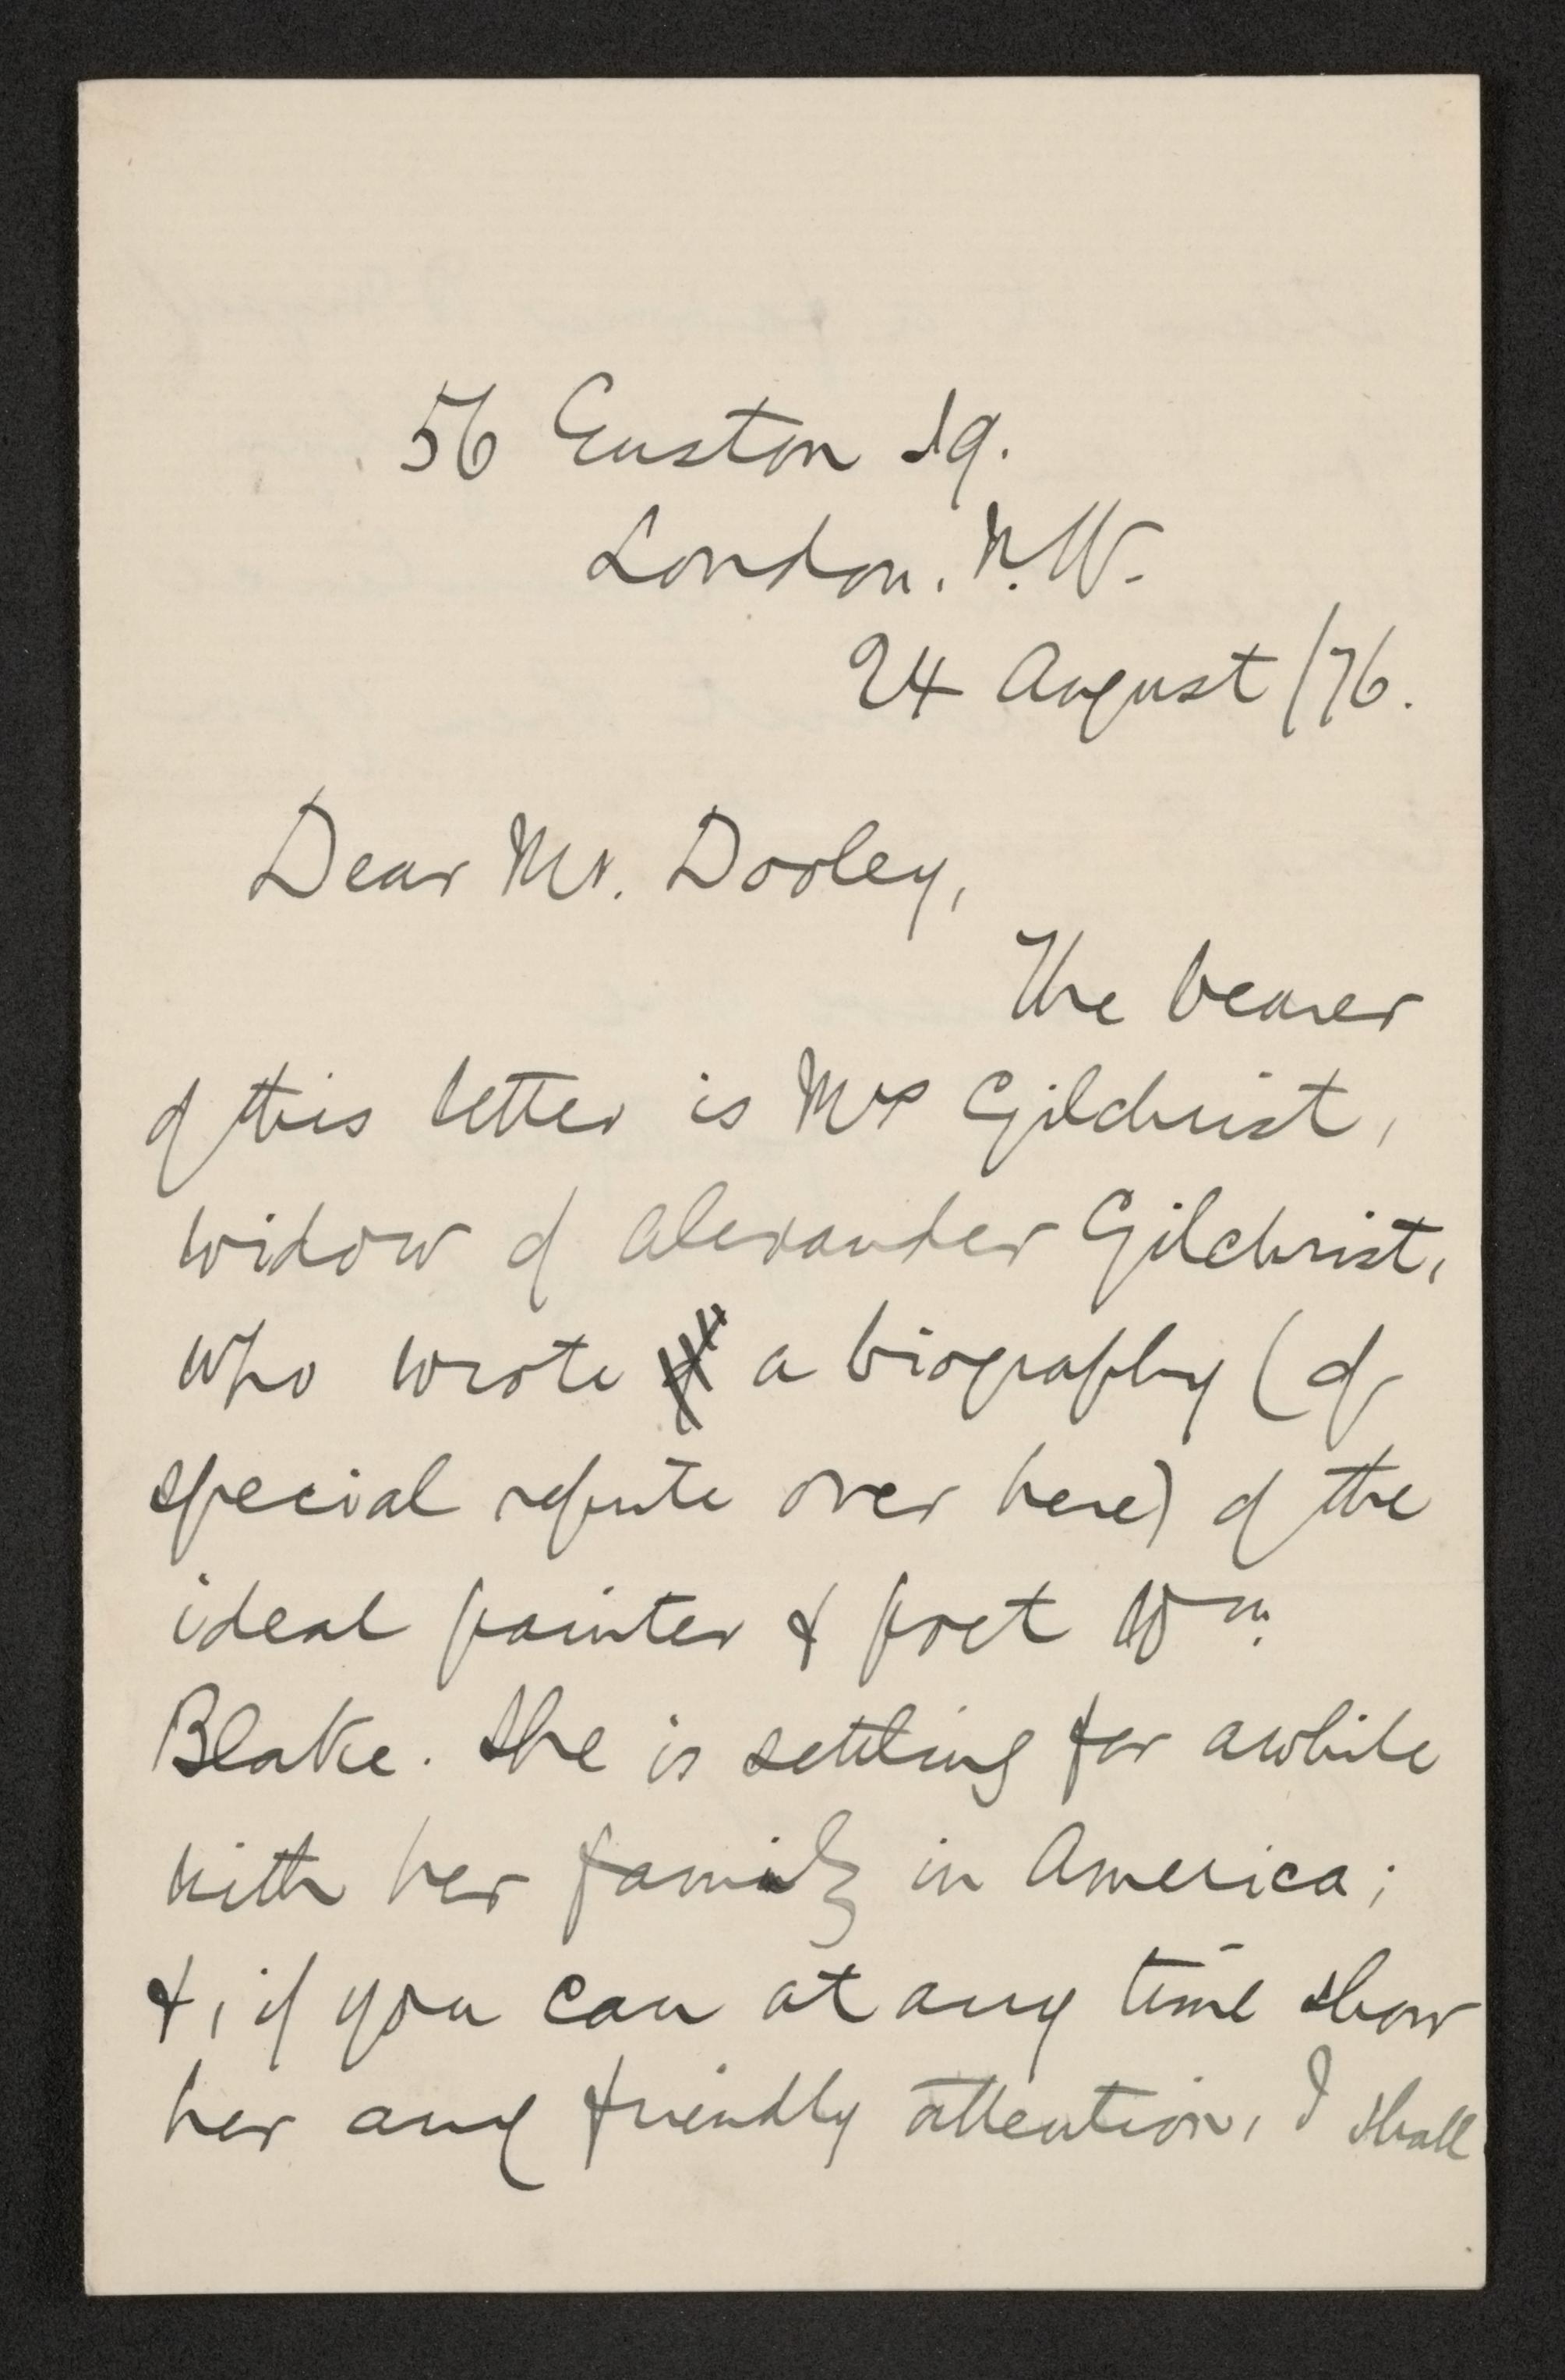 56 Euston Sq.
London. N.W.
24 August /76.
Dear Mr. Dooley,
The bearer
of this letter is Mrs Gilchrist,
widow of Alexander Gilchrist,
who wrote a biography (of
special repute over here) of the
ideal painter & poet Wm.
Blake. She is settling for awhile
with her family in America;
&, if you can at any time show
her any friendly attention, I shall